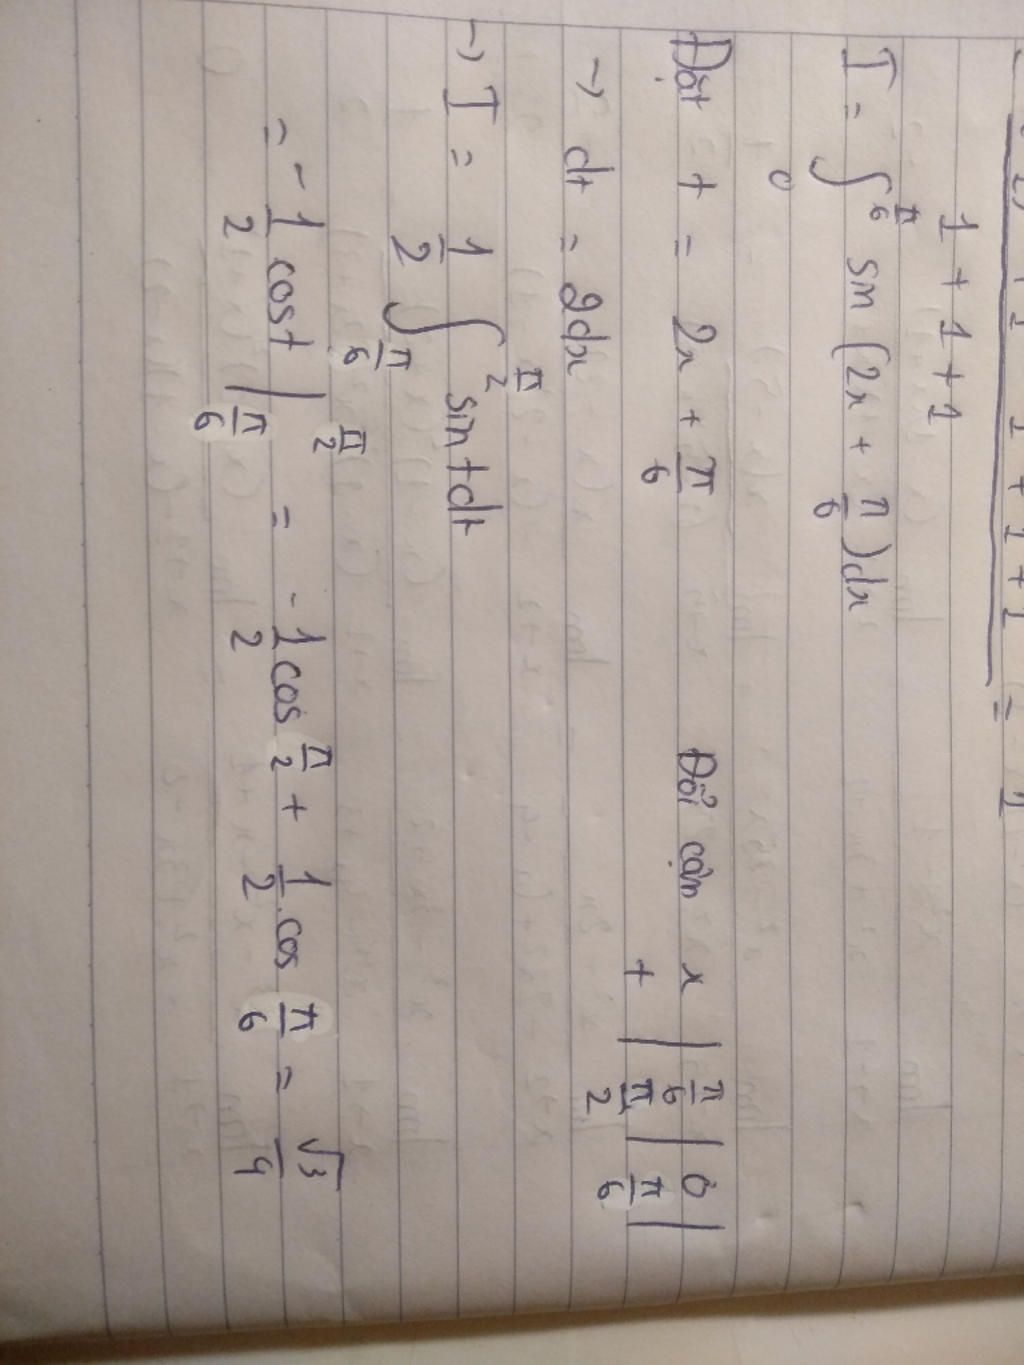 1 + 1 + 1
I = ∫₀^(π/6) sin (2x + π/6)dx
Đặt t = 2x + π/6 Đổi cận x | π/6 | 0 |
t | π/2 | π/6 |
→ dt = 2dx
→ I = 1/2 ∫_(π/6)^(π/2) sin t dt
= -1/2 cost |_(π/6)^(π/2) = -1/2 cos π/2 + 1/2 . cos π/6 = √3/4